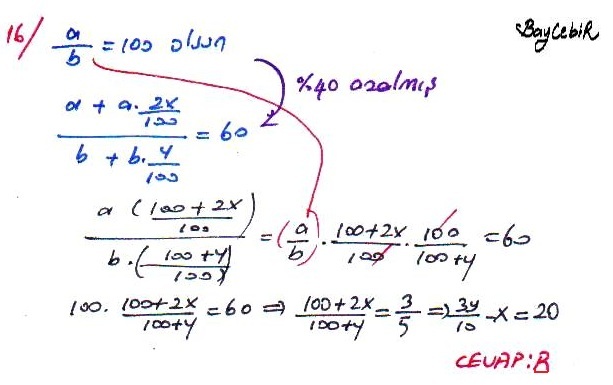 BayCebiR
16/ a/b = 100 olsun
%40 azalmış
(a + a·2x/100) / (b + b·y/100) = 60
a(100+2x / 100) / b·(100+y / 100) = (a/b) · 100+2x / 100 · 100 / 100+y = 60
100· 100+2x / 100+y = 60 ⇒ 100+2x / 100+y = 3/5 ⇒ 3y/10 - x = 20
CEVAP:B